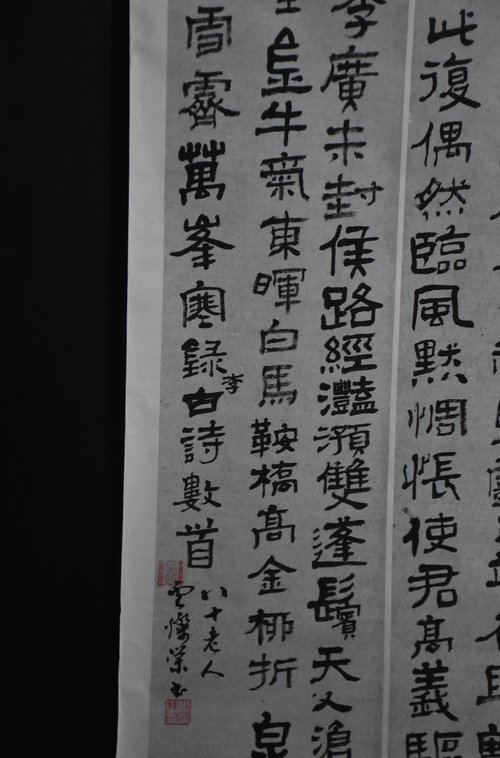 此復偶然臨風默惆悵使君高義驅
李廣未封侯路經灩澦雙蓬鬢天入滄
牛氣東暉白馬鞍橋高金柳折泉
雪霽萬峯寒錄古李詩數首
八十老人